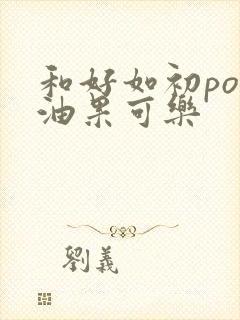 和好如初po
油果可樂
劉義